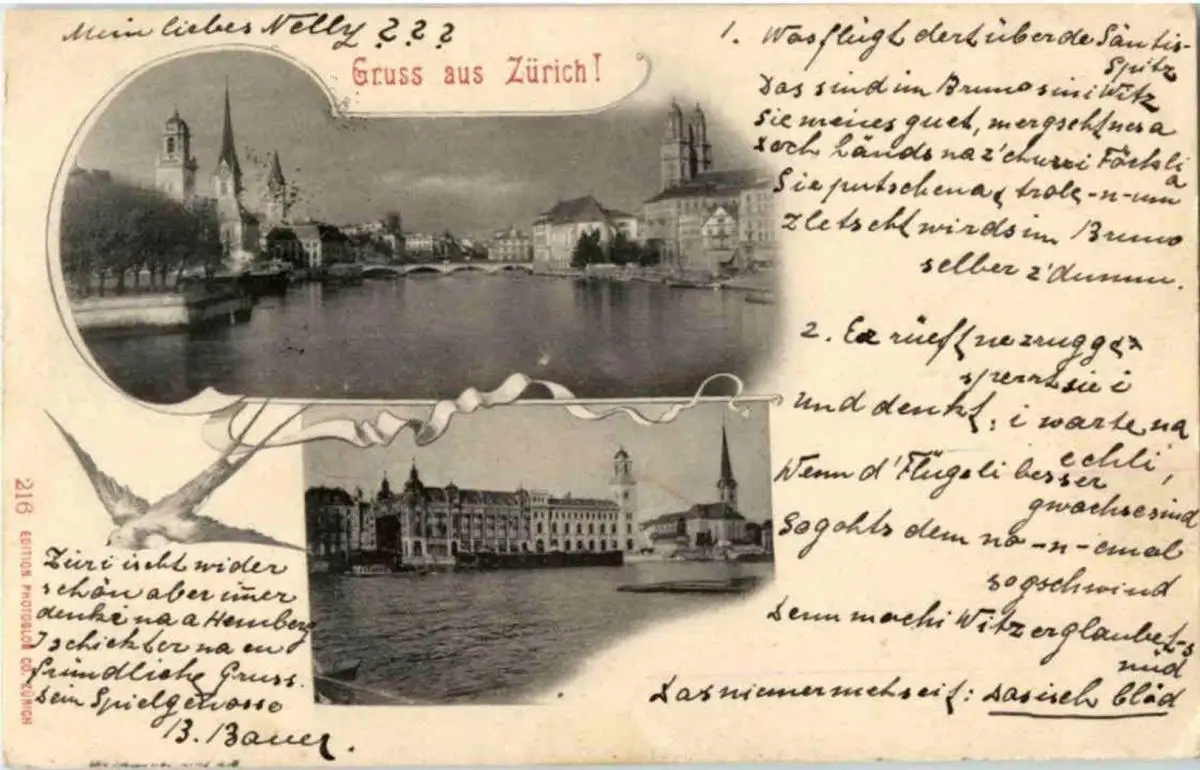 Mein liebes Nelly ? ? ?
Gruss aus Zürich!
1. Was flügt dert über de Säntis-
Spitz
Das sind im Bruno sini Witz
Sie meines guet, mer gseht nes a
Sie putschen a & trole-n-um
Z'letscht wirds im Bruno
selber z'dumm.
2. Er rüeft ne zrugg &
sperrt sie i
Und denkt: i warte na
echli,
Wenn d'Flügeli besser
gwachse sind
So gohts dem no-n-emal
so gschwind
Denn machi Witz er glaubet-s
nüd
Das niemer meh seit: Das isch blöd
Züri ischt wider
schön aber im̄er
denke na a Hemberg
I schick ter na en
fründliche Gruss.
Dein Spielgenosse
B. Bauer.
216 EDITION PHOTOGLOB CO. ZÜRICH